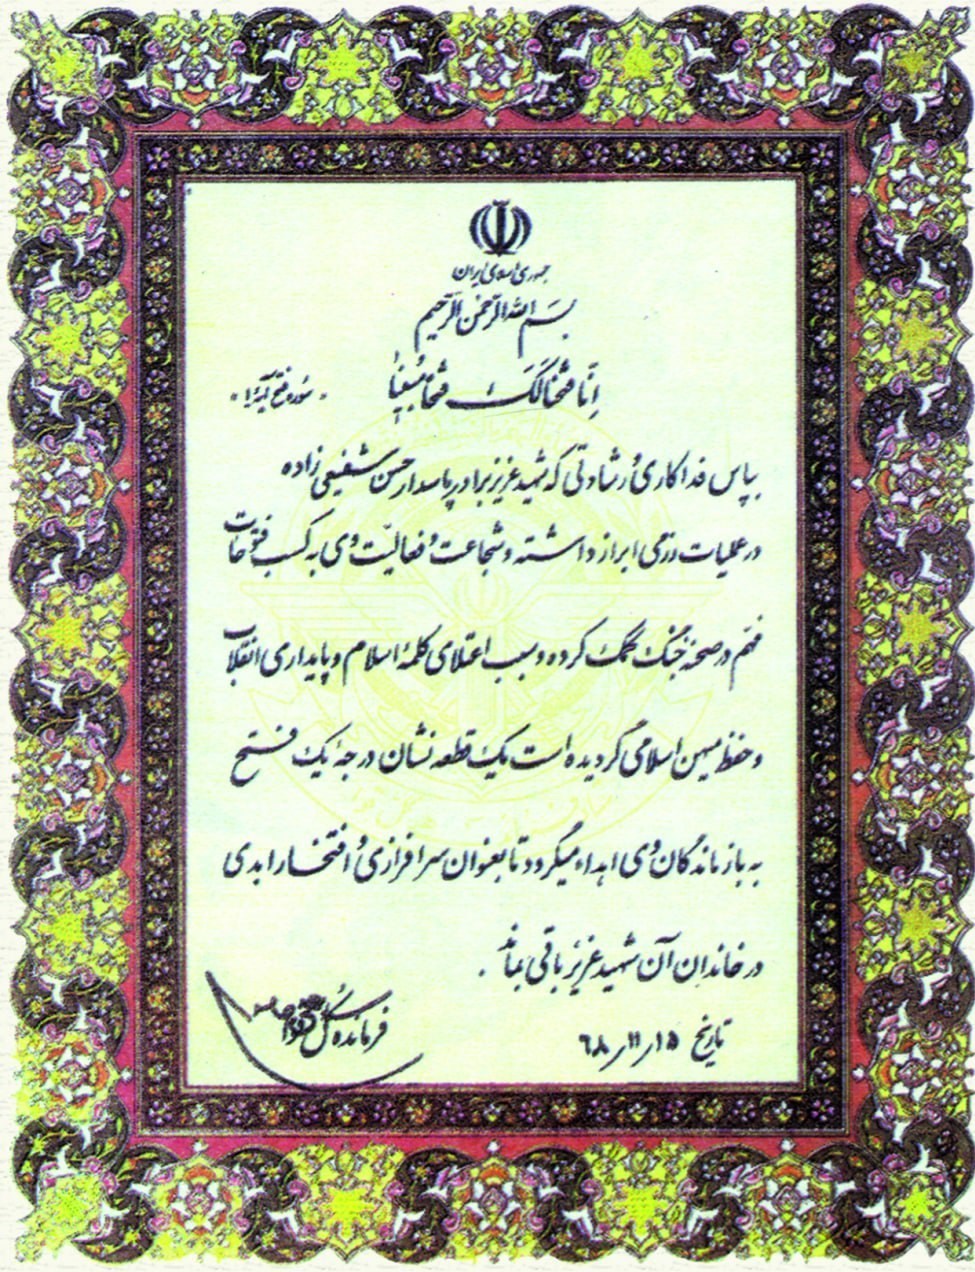 جمهوری اسلامی ایران
بسم الله الرحمن الرحیم
اِنّا فَتَحْنا لَکَ فَتْحاً مُبیناً «سوره فتح آیه ۱»
بپاس فداکاری و رشادتی که شهید عزیز برادر پاسدار حسن شفیعی زاده
در عملیات رزمی ابراز داشته و شجاعت و فعالیت وی به کسب فتوحات
مهم در صحنه جنگ کمک کرده و سبب اعتلای کلمه اسلام و پایداری انقلاب
و حفظ میهن اسلامی گردیده است یک قطعه نشان درجه یک فتح
به بازماندگان وی اهداء میگردد تا بعنوان سرافرازی و افتخار ابدی
در خاندان آن شهید عزیز باقی بماند .
تاریخ ۶۸/۱۱/۱۵
فرمانده کل قوا